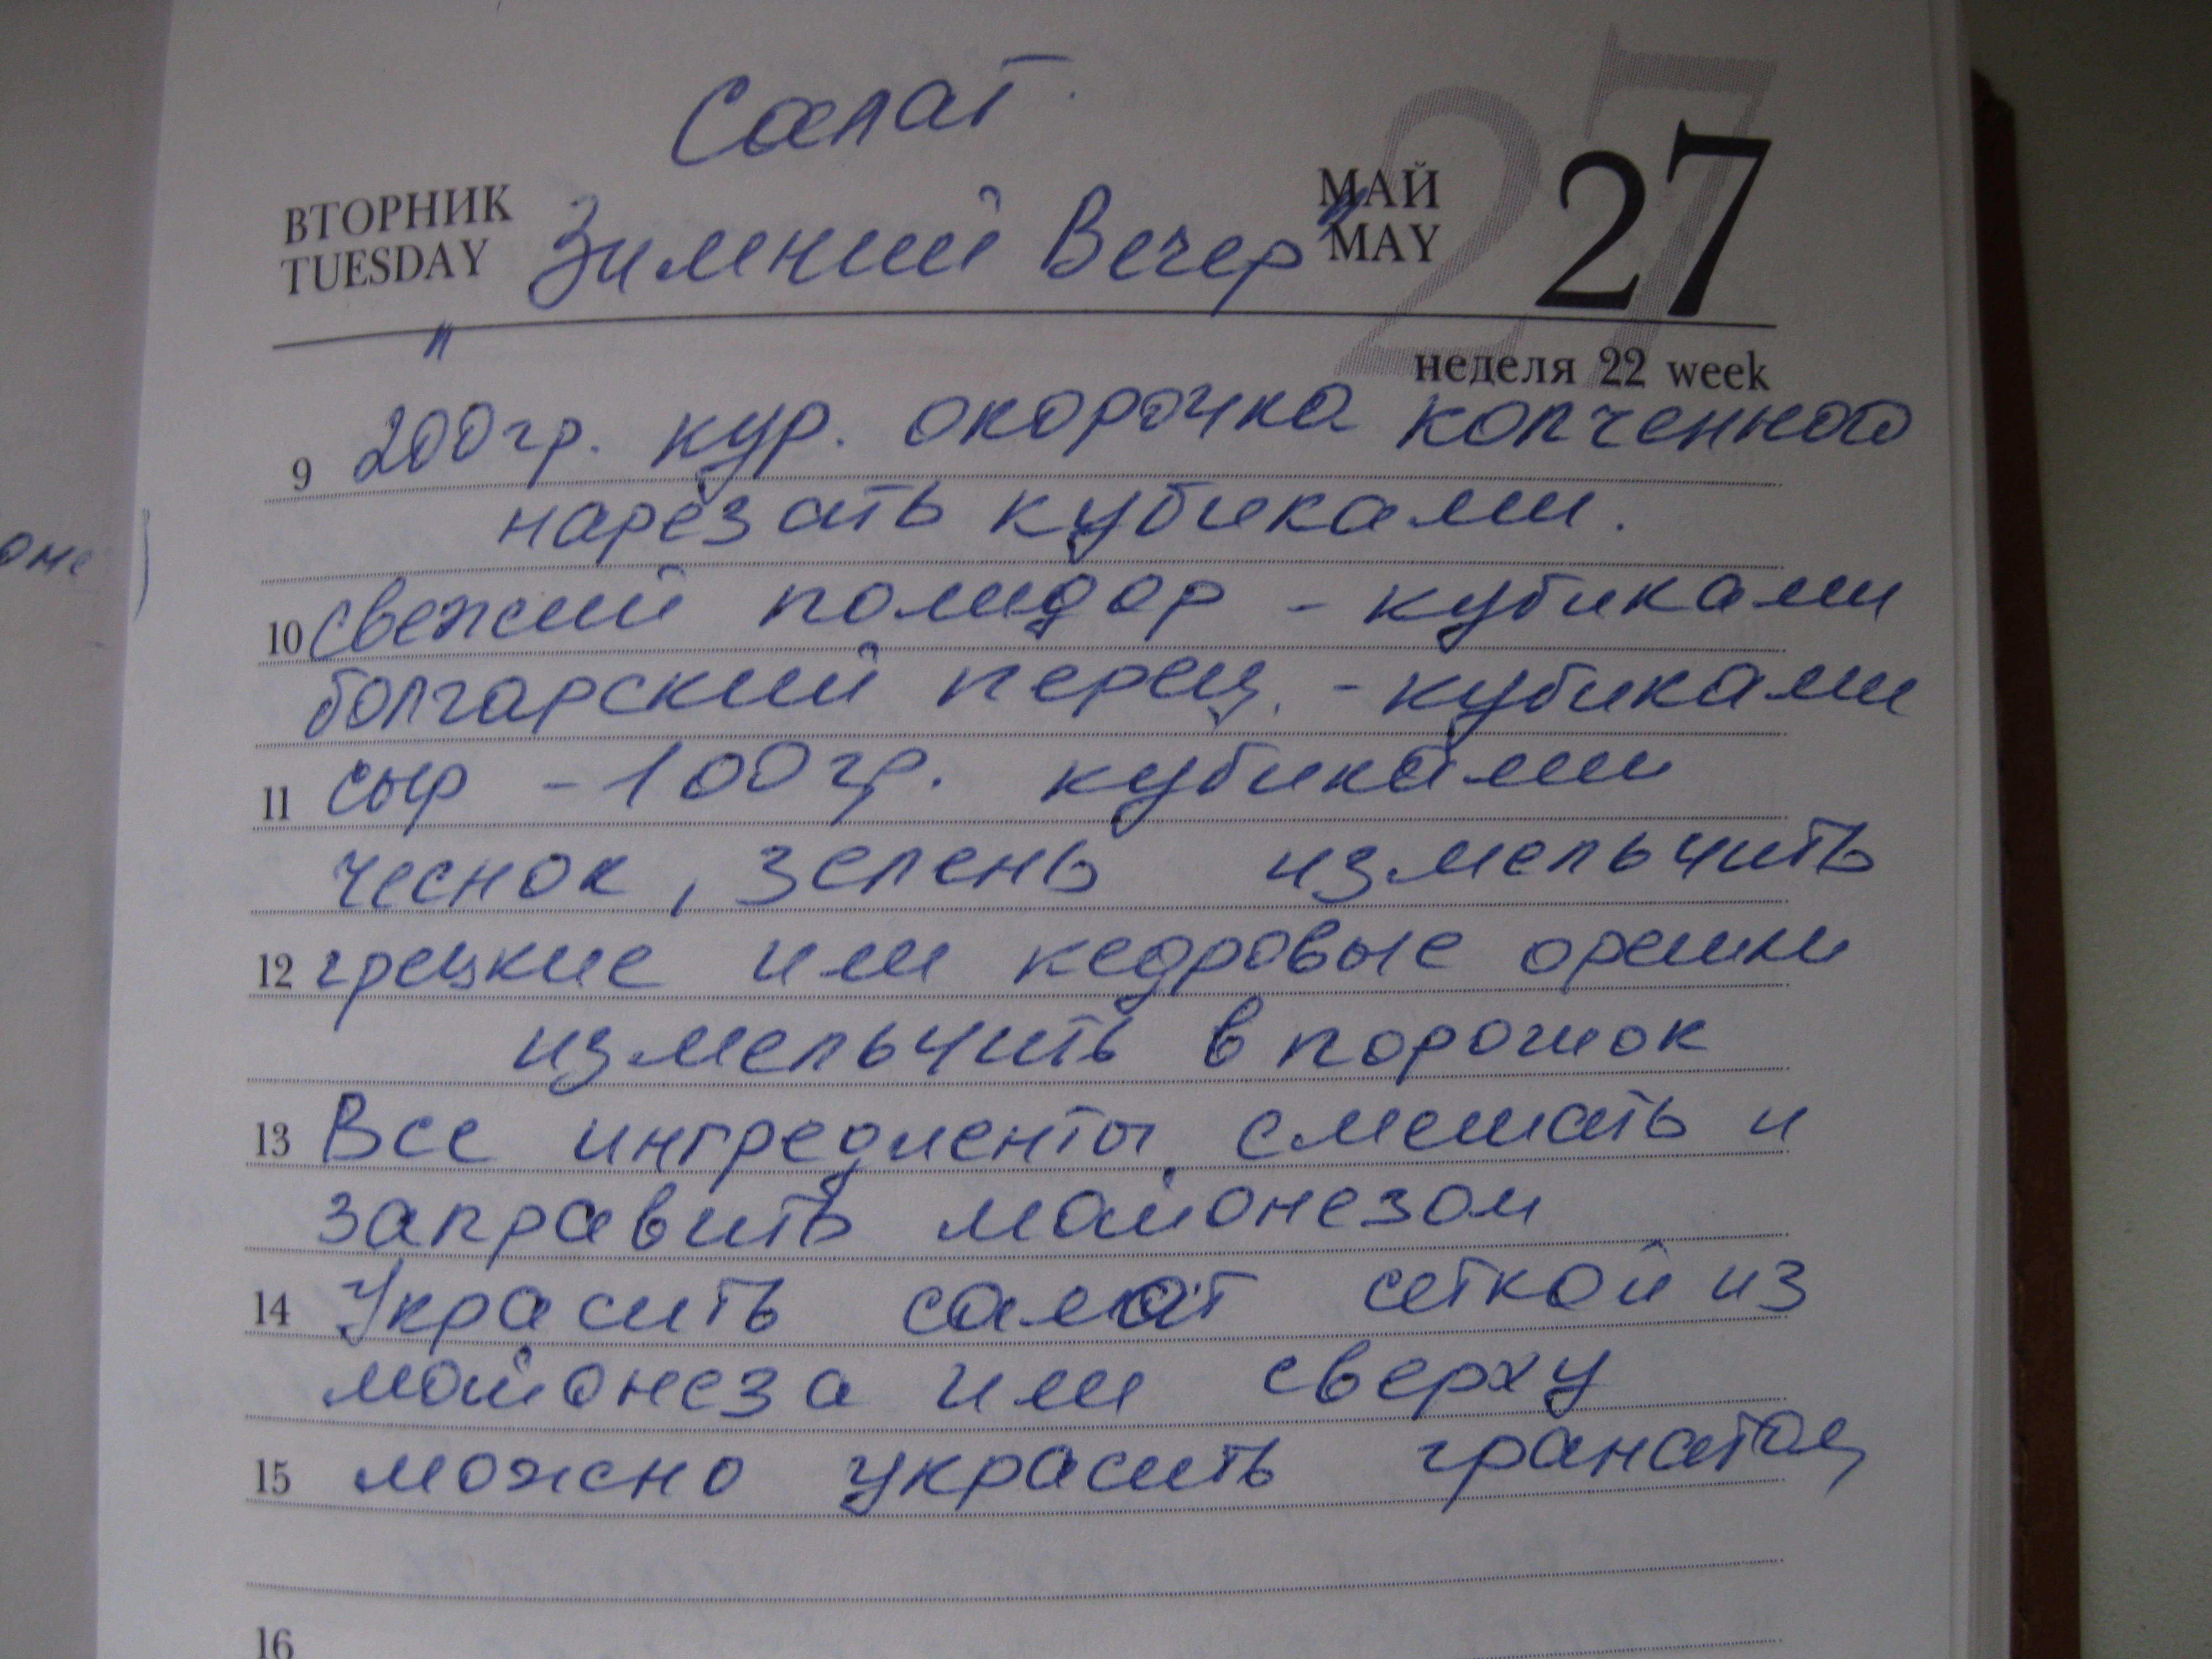 Салат
ВТОРНИК
TUESDAY
"Зимний Вечер"
МАЙ
MAY
27
неделя 22 week
9 200гр. кур. окорочка копченного
нарезать кубиками.
10 свежий помидор - кубиками
болгарский перец. - кубиками
11 сыр - 100гр. кубиками
чеснок, зелень измельчить
12 грецкие или кедровые орешки
измельчить в порошок
13 Все ингредиенты смешать и
заправить майонезом
14 Украсить салат сеткой из
майонеза или сверху
15 можно украсить гранатом
16